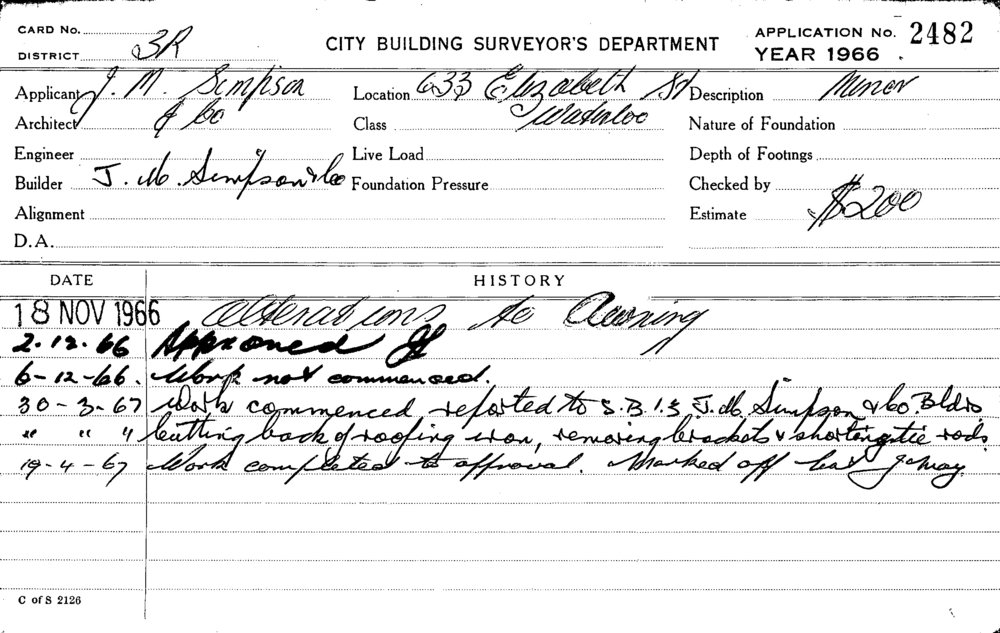 CARD No.
DISTRICT 3R
CITY BUILDING SURVEYOR'S DEPARTMENT
APPLICATION No. 2482
YEAR 1966
Applicant J. M. Simpson
Location 633 Elizabeth St
Description Minor
Architect & Co
Class Waterloo
Nature of Foundation
Engineer
Live Load
Depth of Footings
Builder J. M. Simpson & Co
Foundation Pressure
Checked by
Alignment
Estimate $200
D.A.
DATE HISTORY
18 NOV 1966 Alterations to Awning
2.12.66 Approved
6-12-66. Work not commenced.
30-3-67 Work commenced reported to S.B.I.3 J.M. Simpson & Co. Bldrs
" " " Cutting back of roofing iron, removing brackets & shorting tie rods.
19-4-67 Work completed to approval. Marked off
C of S 2126